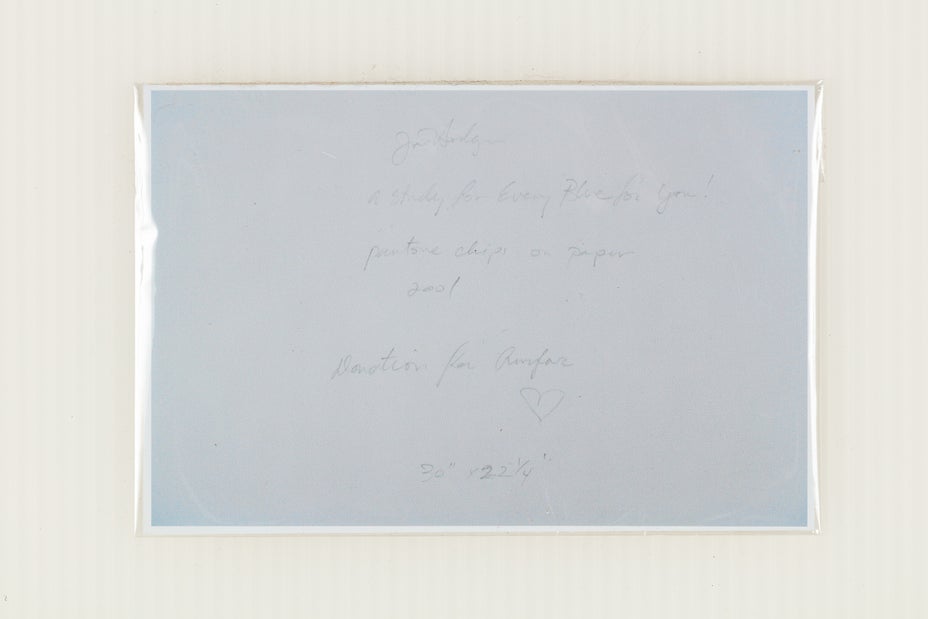 Jim Hodges
a study for Every Blue for you!
pantone chips on paper
2001
Donation for Amfar
30" x 22 1/4"